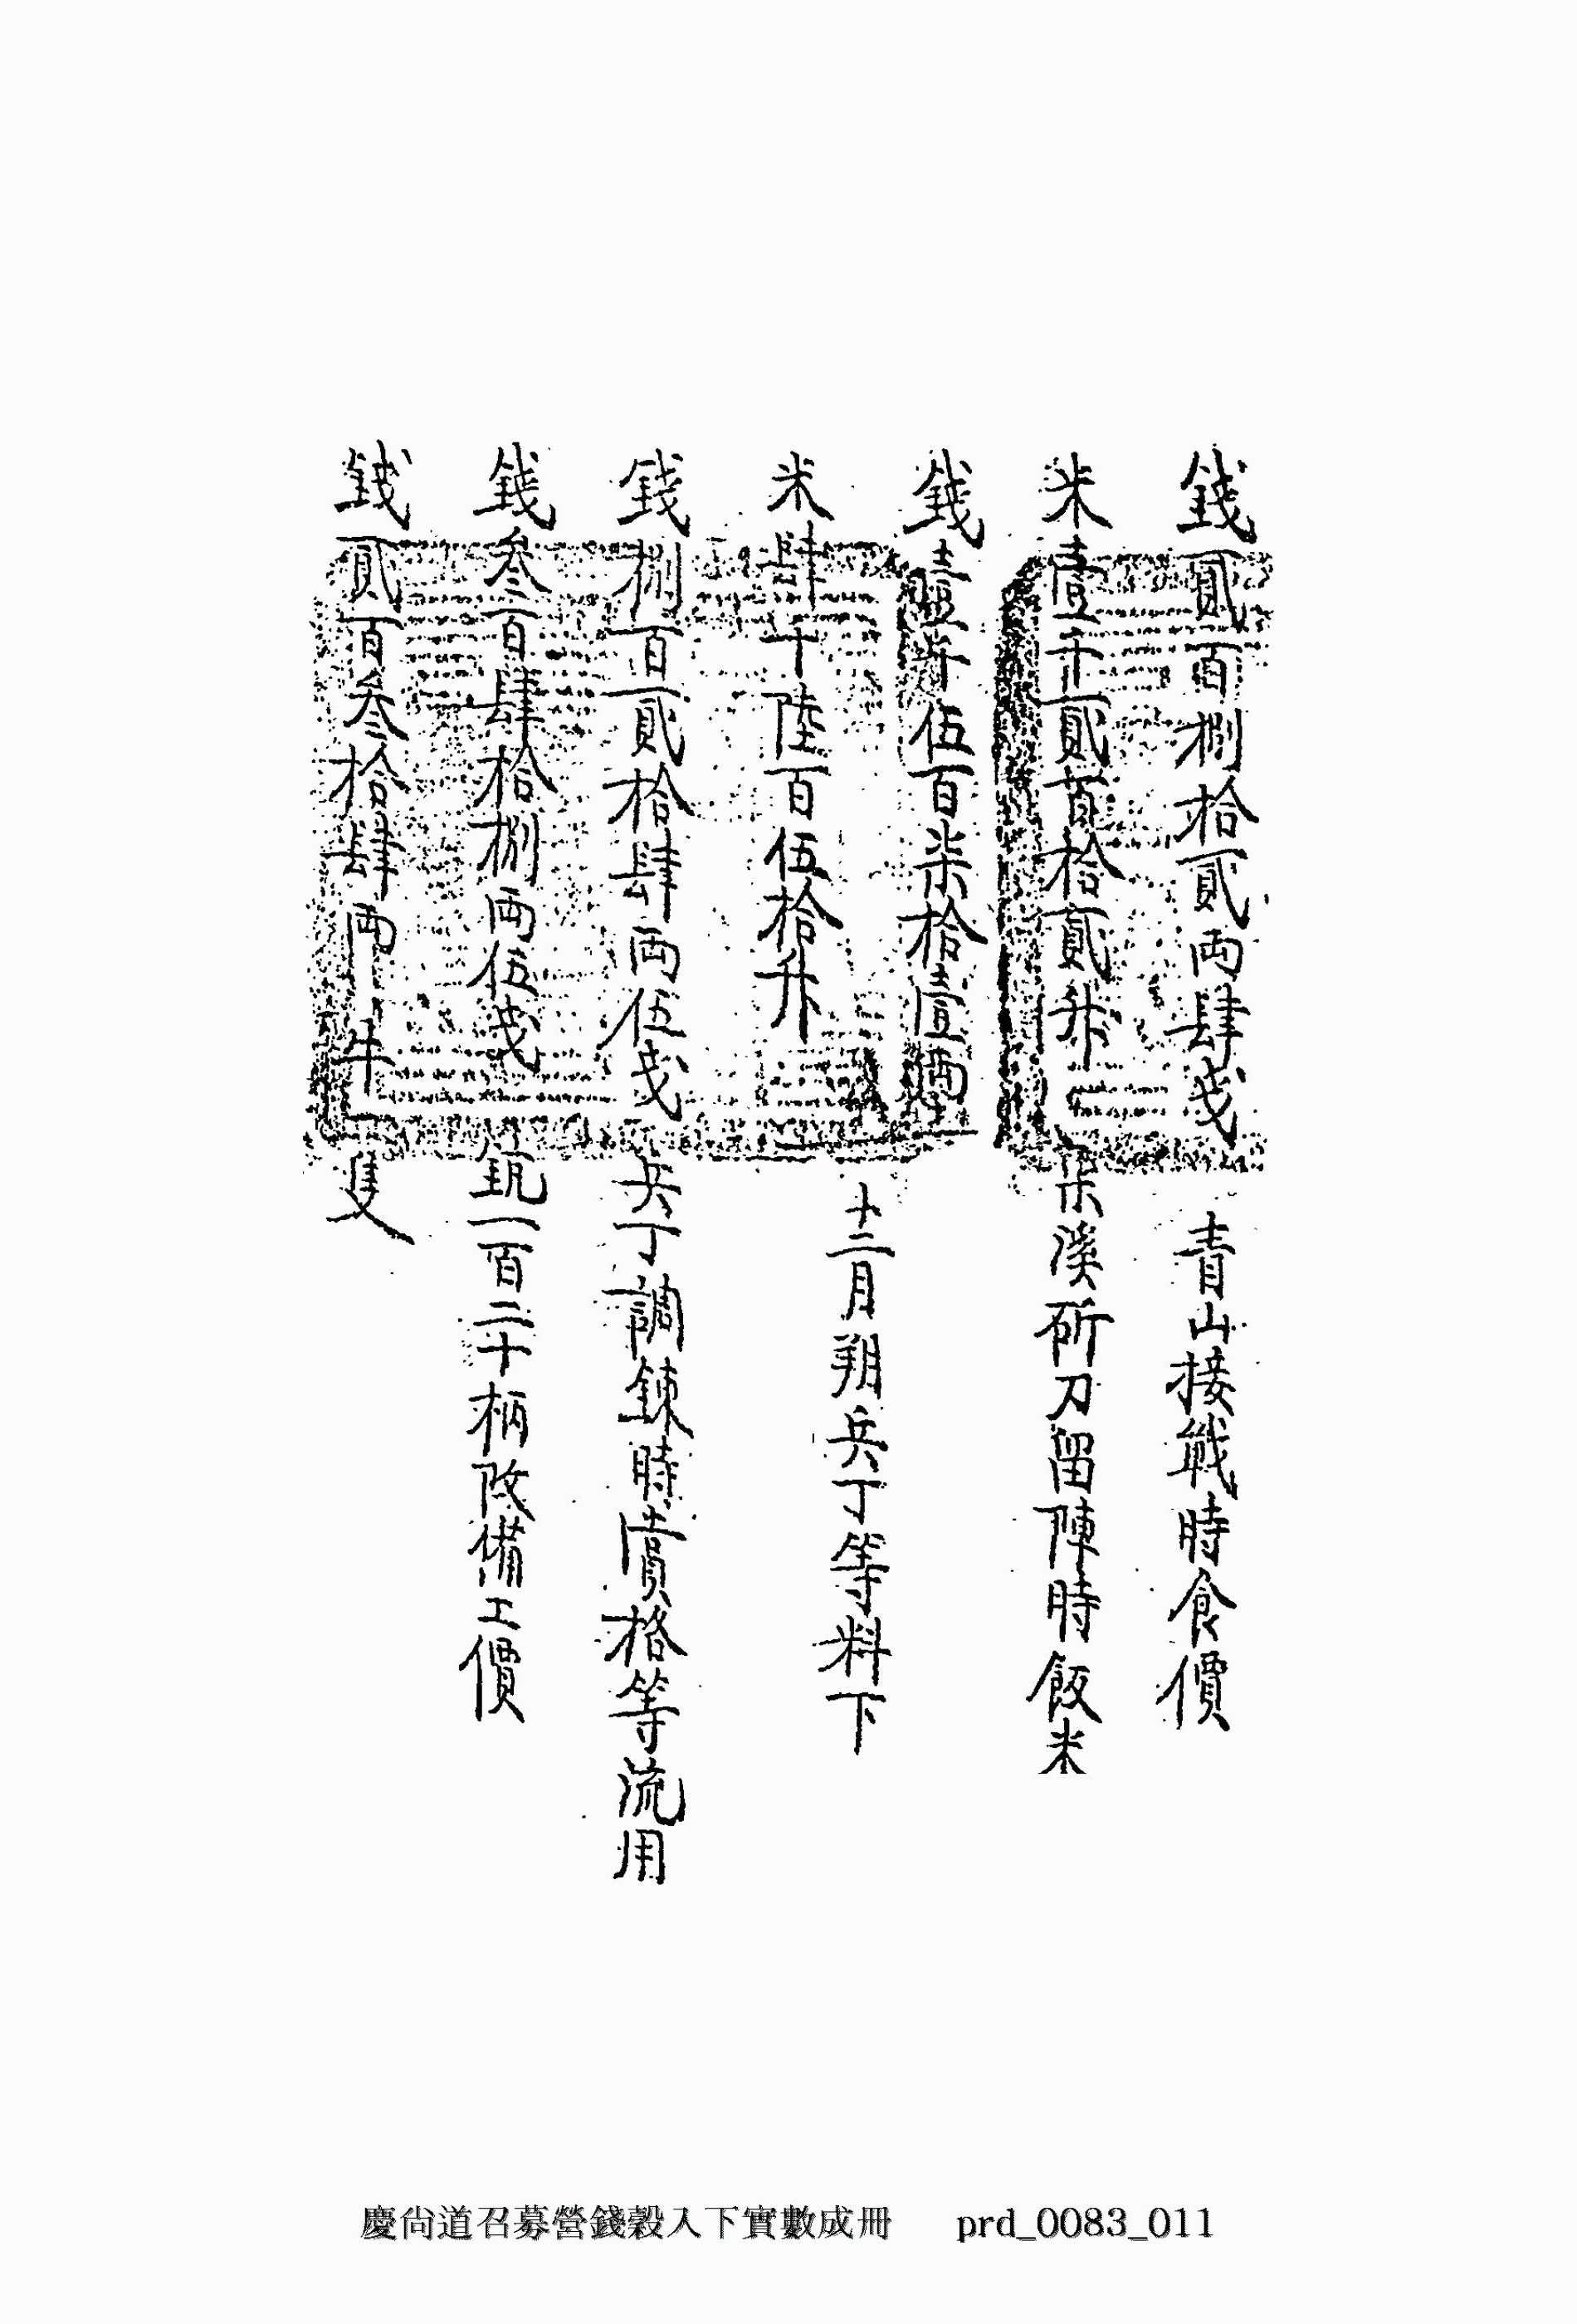 錢貳百捌拾貳兩肆戔 靑山接戰時食價
米壹千貳百拾貳升 栗溪斫刀留陣時飯米
錢壹千伍百柒拾壹兩
米肆千陸百伍拾升
十二月朔兵丁等料下
錢捌百貳拾肆兩伍戔 兵丁調鍊時賞格等流用
錢叁百肆拾捌兩伍戔 銃一百二十柄改備工價
錢貳百叁拾肆兩 牛一隻
慶尙道召募營錢穀入下實數成冊 prd_0083_011